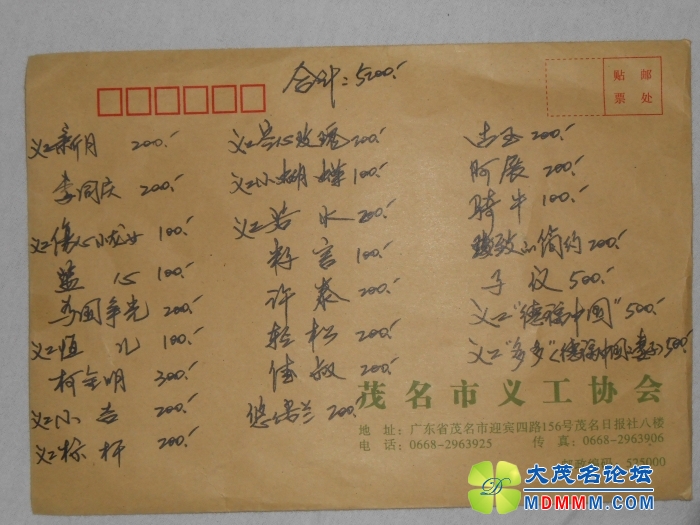 合计:5200.
贴 邮
票 处
义工新月 200.
李同庆 200.
义工伤心小龙女 100.
蓝心 100.
为国争光 200.
义工恒儿 100.
柯金明 300.
义工小吉 200.
义工标杆 200.
义工 200.
义工小蝴蝶 100.
义工若水 200.
籽言 100.
许泰 200.
轻松 200.
佳叔 200.
悠若兰 200.
古玉 200.
阿展 200.
骑牛 100.
致心简约 200.
子仪 500.
义工“德福中国” 500.
义工“多多”(德福中国 ) 500.
茂名市义工协会
地 址:广东省茂名市迎宾四路156号茂名日报社八楼
电 话:0668-2963925 传 真:0668-2963906
邮政编码 525000
大茂名论坛
MDMMM.COM